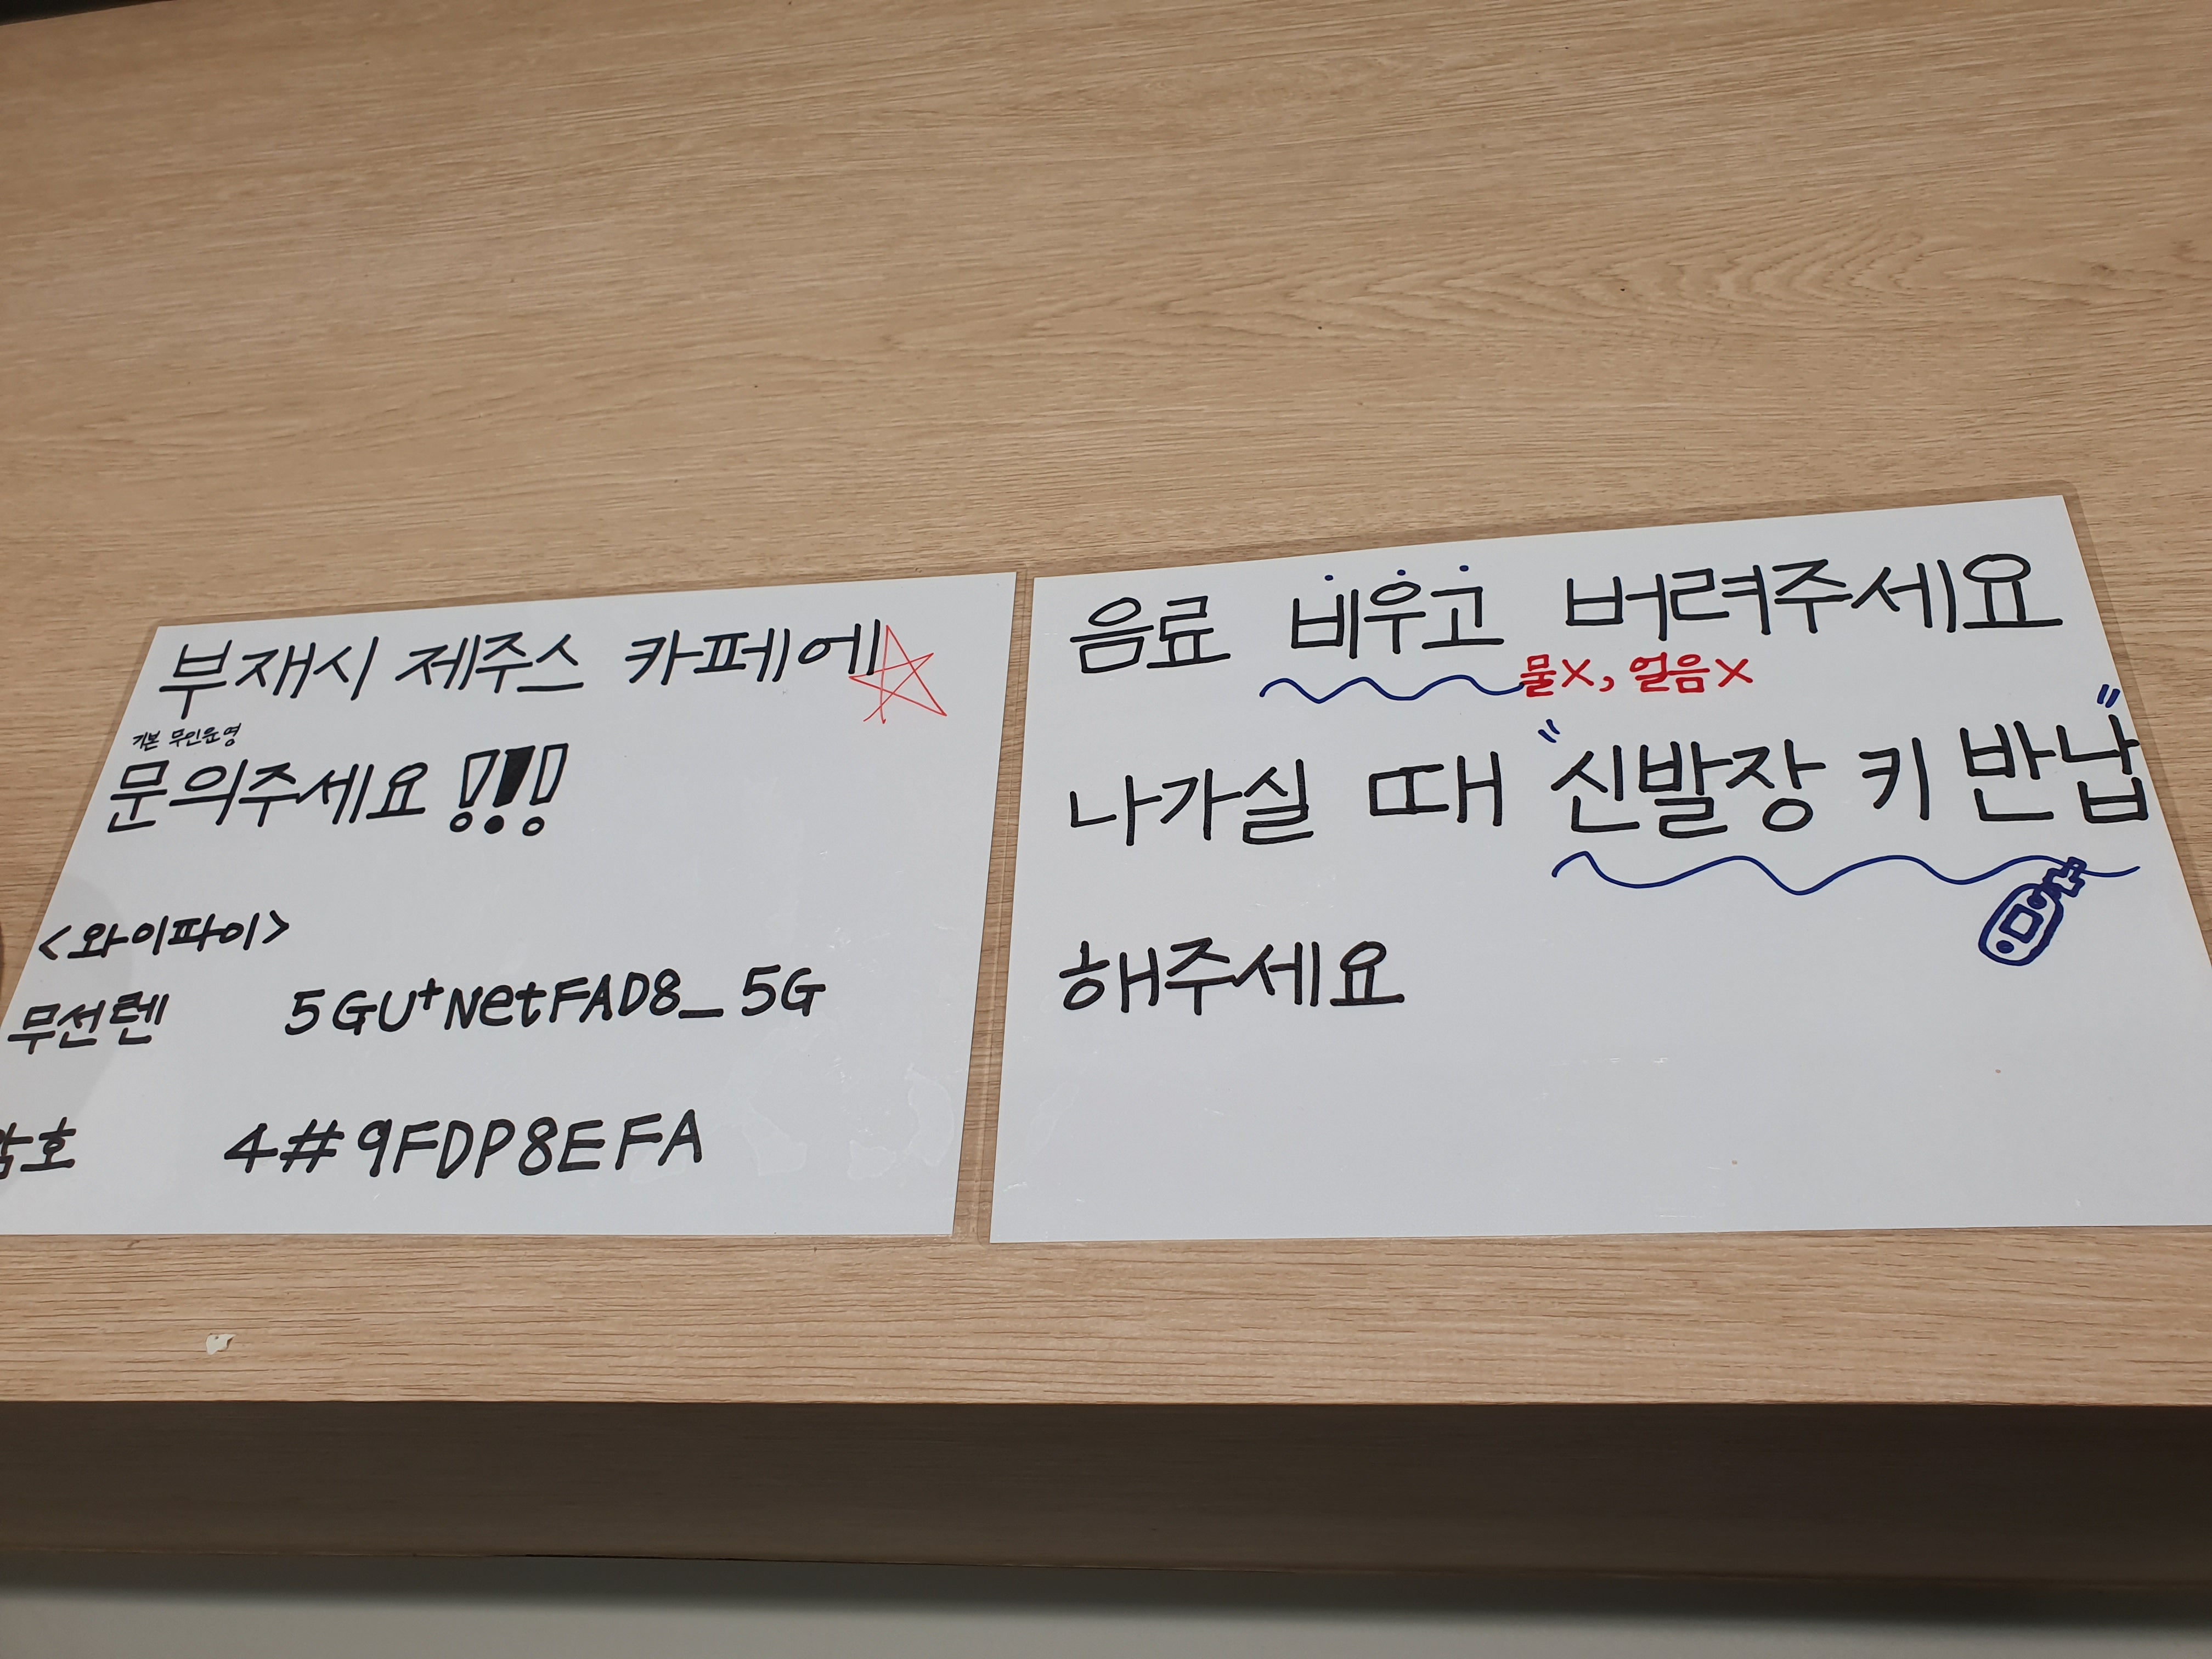 부재시 제주스 카페에
기본 무인운영
문의주세요!!!
<와이파이>
무선렌 5GU+NetFAD8_5G
암호 4#9FDP8EFA
음료 비우고 버려주세요
물X, 얼음X
나가실 때 "신발장 키 반납"
해주세요